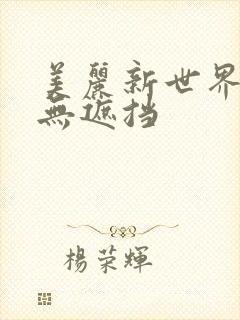 美麗新世界
無遮挡
楊荣輝